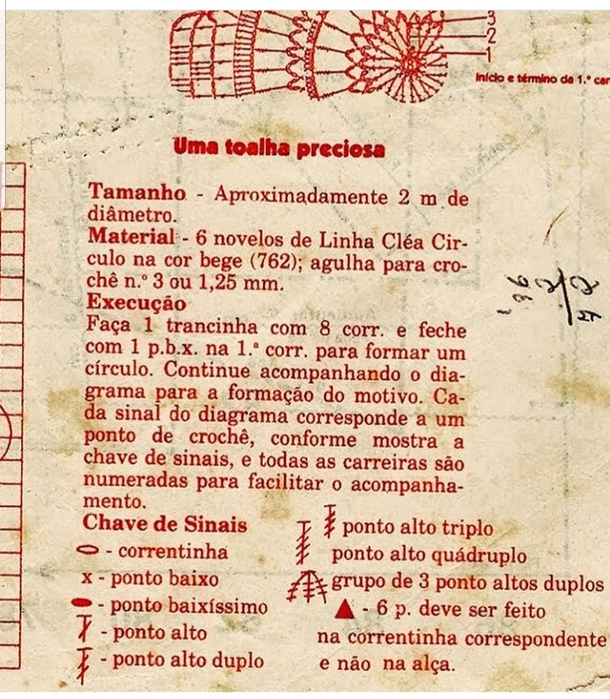 3
2
1
início e término da 1.ª car
Uma toalha preciosa
Tamanho - Aproximadamente 2 m de
diâmetro.
Material - 6 novelos de Linha Cléa Cir-
culo na cor bege (762); agulha para cro-
chê n.º 3 ou 1,25 mm.
Execução
Faça 1 trancinha com 8 corr. e feche
com 1 p.b.x. na 1.ª corr. para formar um
círculo. Continue acompanhando o dia-
grama para a formação do motivo. Ca-
da sinal do diagrama corresponde a um
ponto de crochê, conforme mostra a
chave de sinais, e todas as carreiras são
numeradas para facilitar o acompanha-
mento.
Chave de Sinais
- correntinha
x - ponto baixo
- ponto baixíssimo
- ponto alto
- ponto alto duplo
ponto alto triplo
ponto alto quádruplo
grupo de 3 ponto altos duplos
- 6 p. deve ser feito
na correntinha correspondente
e não na alça.